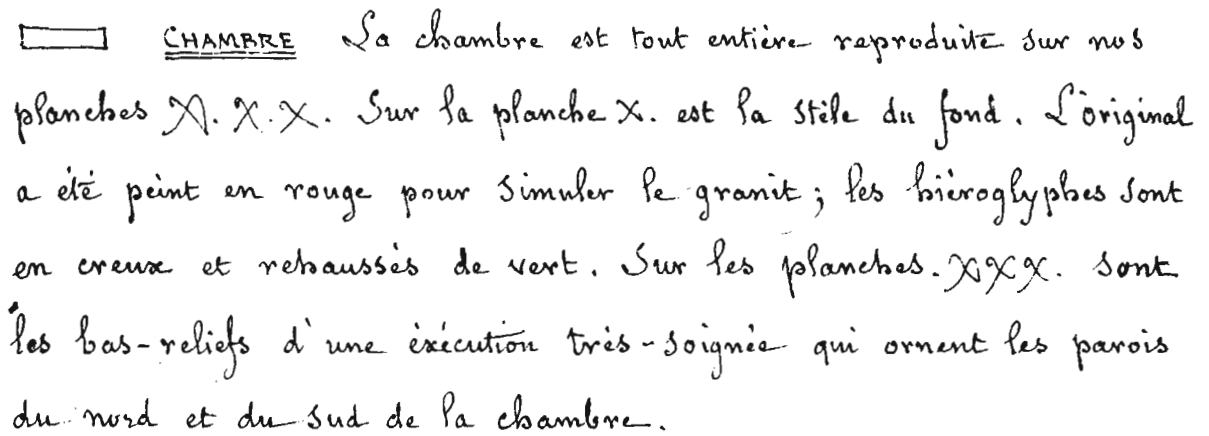 CHAMBRE La chambre est tout entière reproduite sur nos
planches X. X. X. Sur la planche X. est la stèle du fond. L'original
a été peint en rouge pour simuler le granit ; les hiéroglyphes sont
en creux et rehaussés de vert. Sur les planches. XXX. sont
les bas-reliefs d'une éxécution très-soignée qui ornent les parois
du nord et du sud de la chambre.